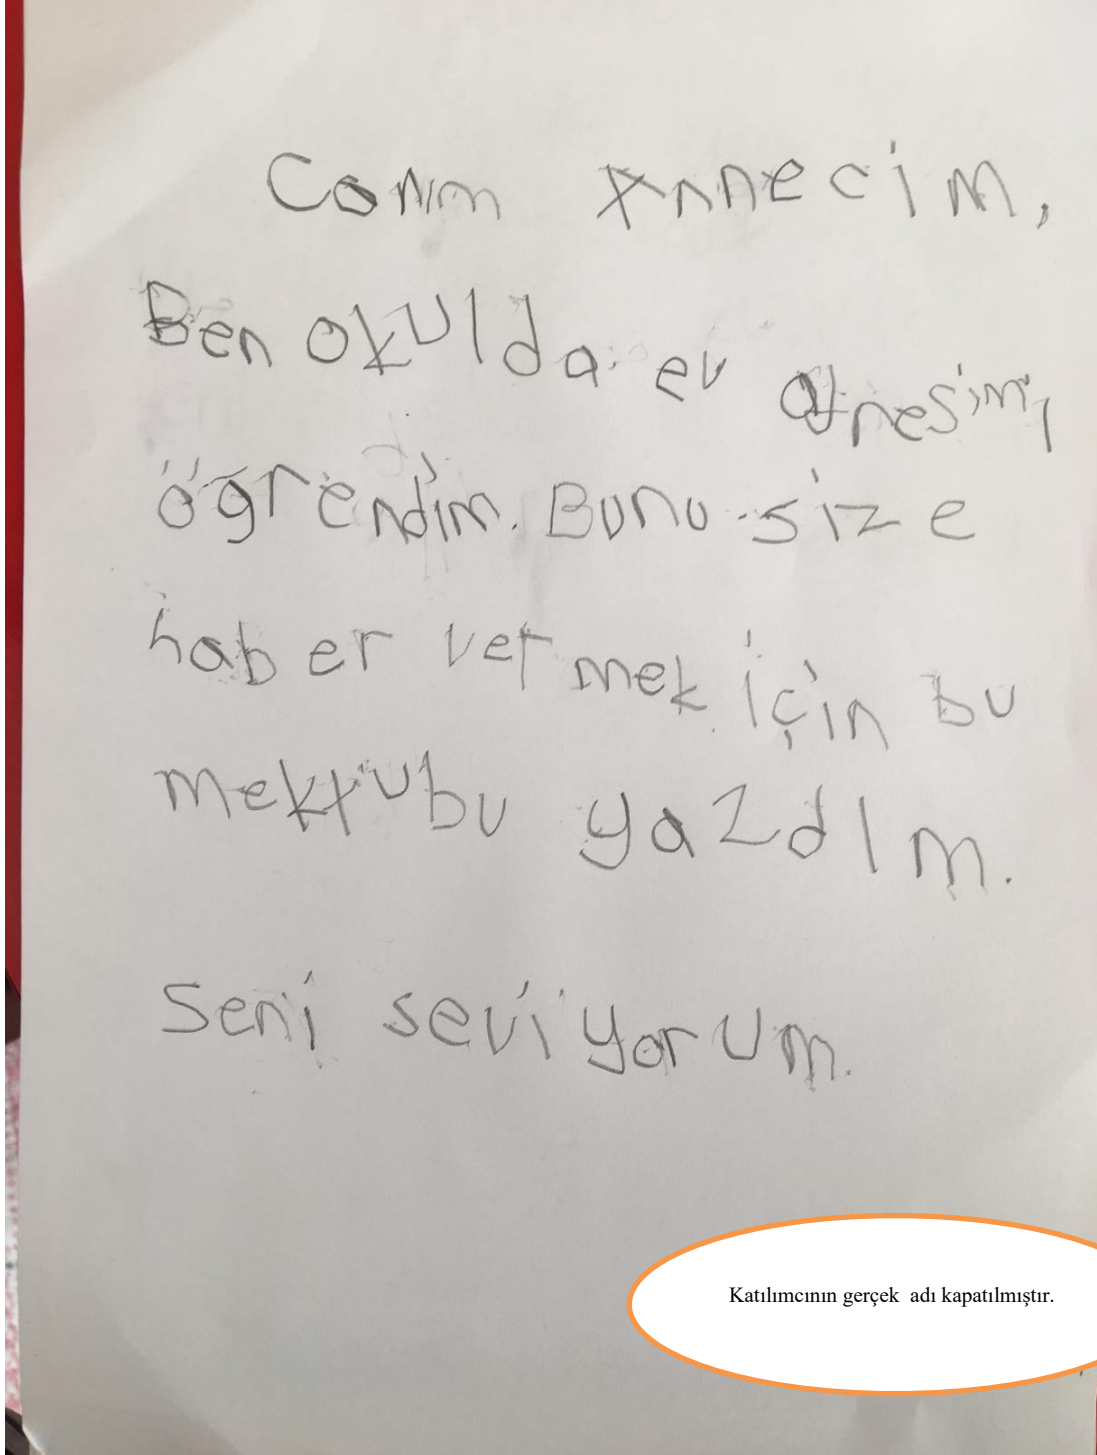 Canım Annecim,
Ben okulda ev atresimi
öğrendim. Bunu size
haber vermek için bu
mektubu yazdım.
Seni seviyorum.
Katılımcının gerçek adı kapatılmıştır.